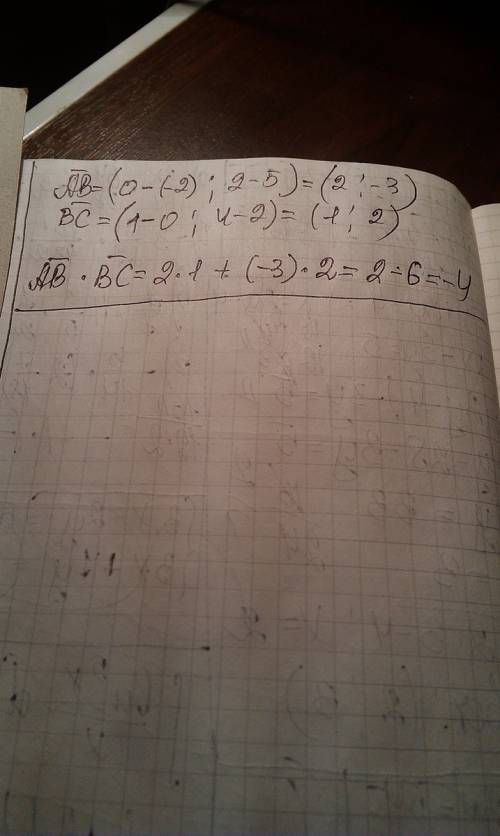 AB=(0-(-2); 2-5)=(2;-3)
BC=(1-0; 4-2)=(1; 2)
AB·BC=2·1+(-3)·2=2-6=-4